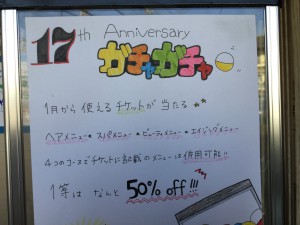 17th Anniversary
ガチャガチャ
1月から使えるチケットが当たる
ヘアメニュー・スパメニュー・ビューティメニュー・エイジングメニュー
4つのコースでチケットに記載のメニューは併用可能!!
1等は なんと 50% off!!!